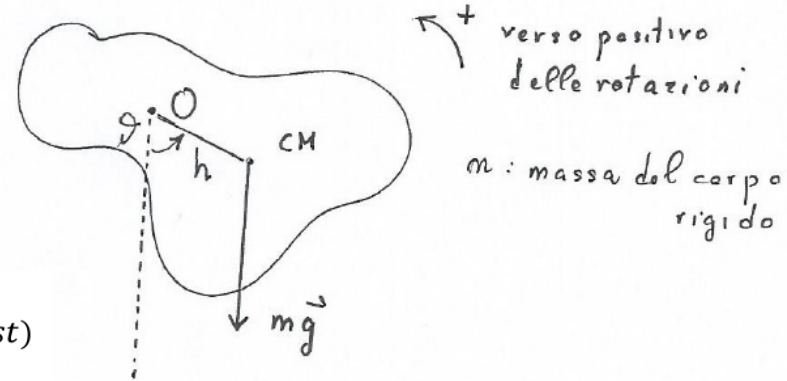 +
verso positivo
delle rotazioni
O
ϑ
h
CM
m : massa del corpo
rigido
st)
mg⃗